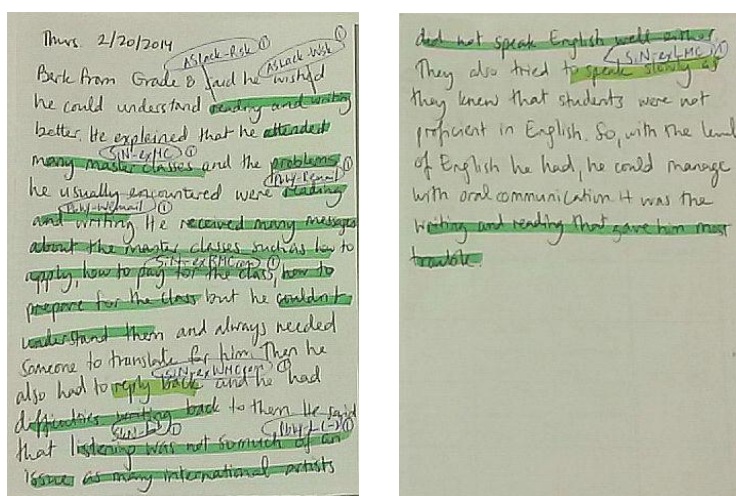 Thurs. 2/20/2014
ASLack-Rsk ①
ASLack-Wsk ①
Berk from Grade 8 said he wished
he could understand reading and writing
better. He explained that he attended
SiN-exMC ①
many master classes and the problems
he usually encountered were reading
①
and writing. He received many messages
about the master classes such as how to
①
apply, how to pay for the class, how to
prepare for the class but he couldn't
understand them and always needed
someone to translate for him. Then he
①
also had to reply back and he had
difficulties writing back to them. He said
①
that listening was not so much of an
issue as many international artists
did not speak English well either.
SiN-exLMC ①
They also tried to speak slowly as
they knew that students were not
proficient in English. So, with the level
of English he had, he could manage
with oral communication. It was the
writing and reading that gave him most
trouble.